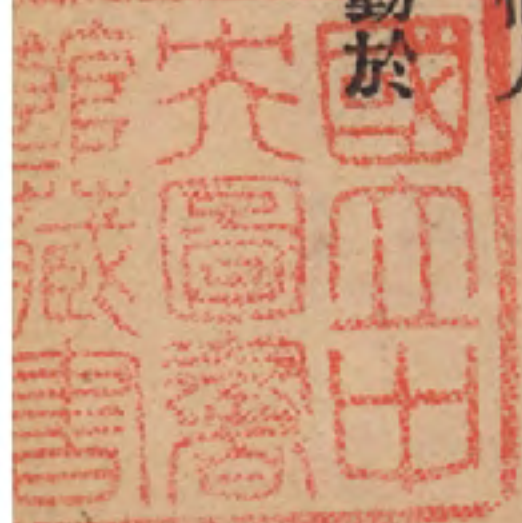 於
國立中
央圖書
館藏書